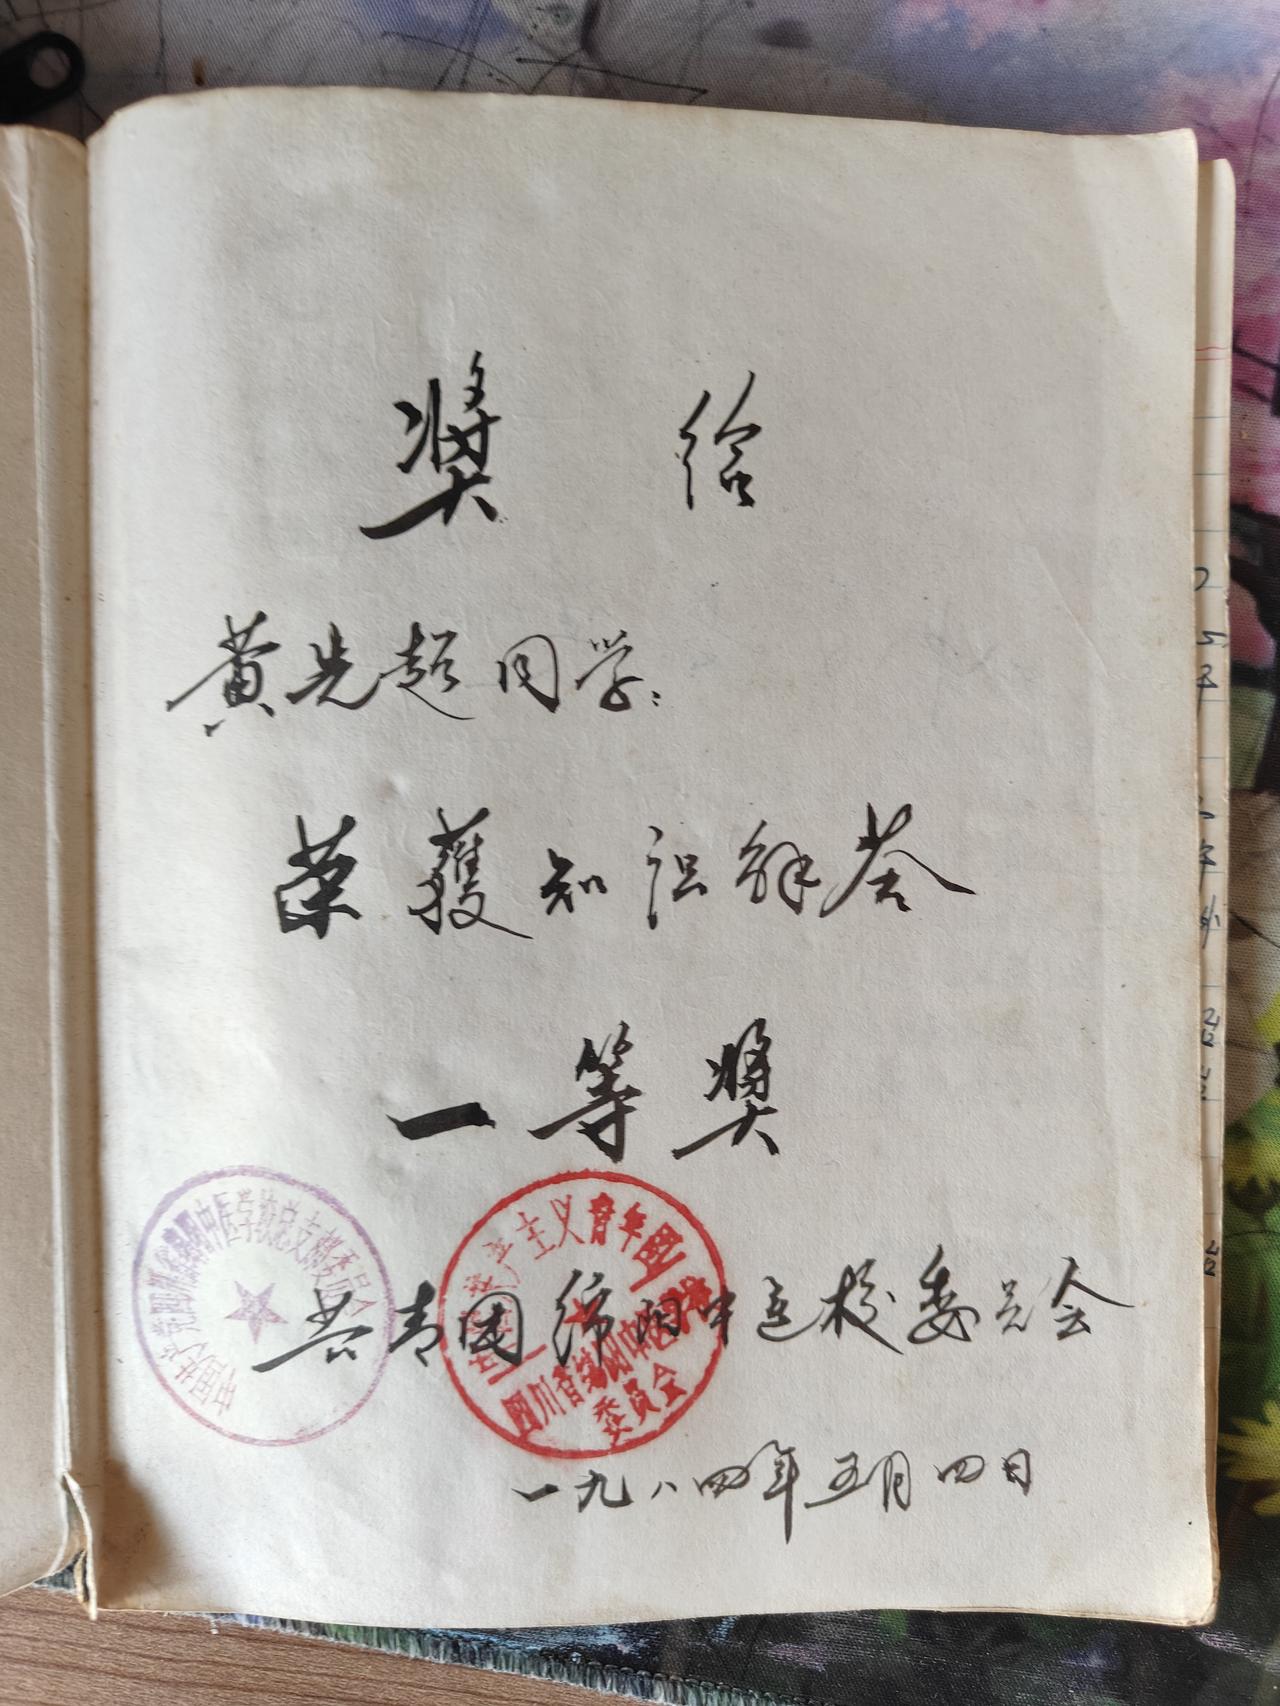 奖 给
黄先超同学：
荣獲知识解答
一等奖
共青团绵阳中医校委员会
一九八四年五月四日
中国共产党四川省绵阳中医学校总支部委员会
产主义青年团
四川省绵阳中医
委员会